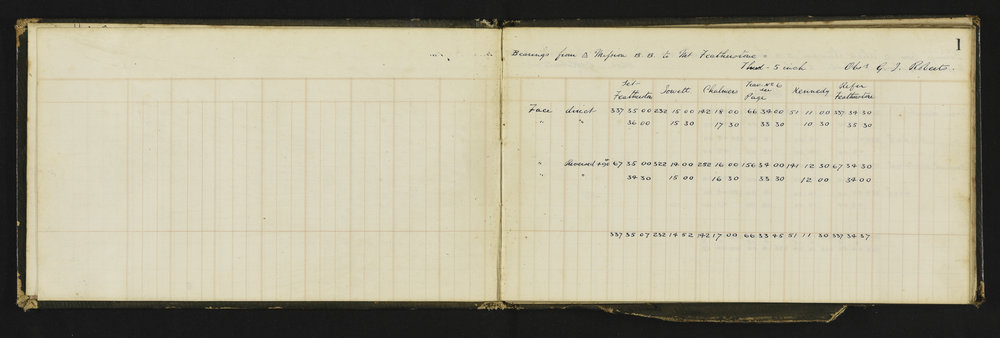 1
Bearings from △ Mission B.B. to Mt Featherstone =
Theod - 5 inch Obsr G. J. Roberts.
Set Featherston Jowett Chalmer Trav. No 6 see Page Kennedy Refer Featherstone
Face direct 337 35 00 232 15 00 142 18 00 66 34 00 51 11 00 337 34 30
" " 36 00 15 30 17 30 33 30 10 30 35 30
" Reversed +90 67 35 00 322 14 00 232 16 00 156 34 00 141 12 30 67 34 30
" " 34 30 15 00 16 30 33 30 12 00 34 00
337 35 07 232 14 52 142 17 00 66 33 45 51 11 30 337 34 37